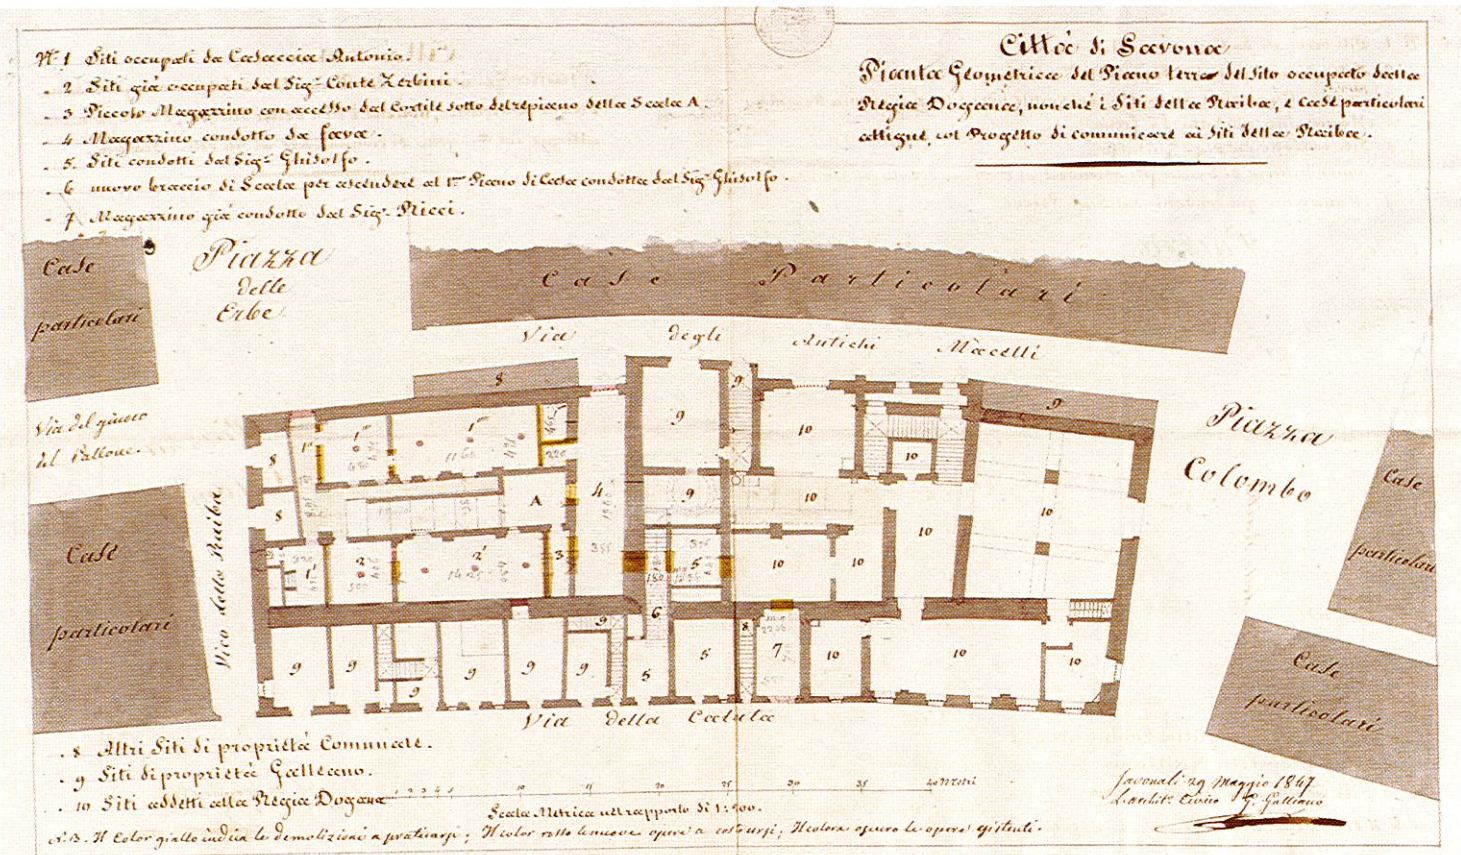 N.º 1 Siti occupati da Casaccia Antonio.
. 2 Siti già occupati dal Sig.r Conte Zerbini.
. 3 Piccolo Magazzino con accesso dal Cortile sotto del repiano della Scala A.
. 4 Magazzino condotto da fava.
. 5. Siti condotti dal Sig.r Ghisolfo.
. 6 nuovo braccio di Scala per ascendere al 1.mo Piano di Casa condotta dal Sig.r Ghisolfo.
. 7 Magazzino già condotto dal Sig.r Ricci.
Città di Savona
Pianta Geometrica del Piano terra del sito occupato dalla
Regia Dogana, nonchè i Siti della Raiba, e case particolari
attigue, col Progetto di comunicare ai Siti della Raiba.
Case
particolari
Piazza
delle
Erbe
Case Particolari
Via degli Antichi Macelli
Via del giuoco
del Pallone.
Piazza
Colombo
Case
particolari
Case
particolari
Vico della Raiba
Case
particolari
8
9
9
9
10
10
8
1'''
1'''
1160
220
A
4
9
10
10
10
8
1'
2
500
2'
1425
3
355
5
180
6
10
10
9
9
9
9
9
9
9
5
5
8
7
10
10
10
Via della Calata
. 8 Altri Siti di proprietà Comunale.
. 9 Siti di proprietà Galleano.
. 10 Siti addetti alla Regia Dogana
1 2 3 4 5 10 15 20 25 30 35 40 Metri
Scala Metrica nel rapporto di 1:200.
N.B. Il Color giallo indica le demolizioni a praticarsi; Il color rosso le nuove opere a costrursi; Il colore oscuro le opere esistenti.
Savona li 29 Maggio 1847
L'archit.º Civico G. Galliano